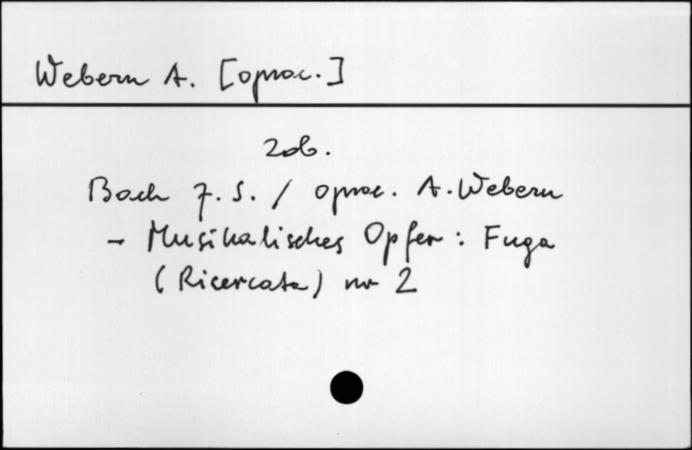 Webern A. [oprac.]
zob.
Bach J. S. / oprac. A. Webern
- Musikalisches Opfer : Fuga
(Ricercata) nr 2